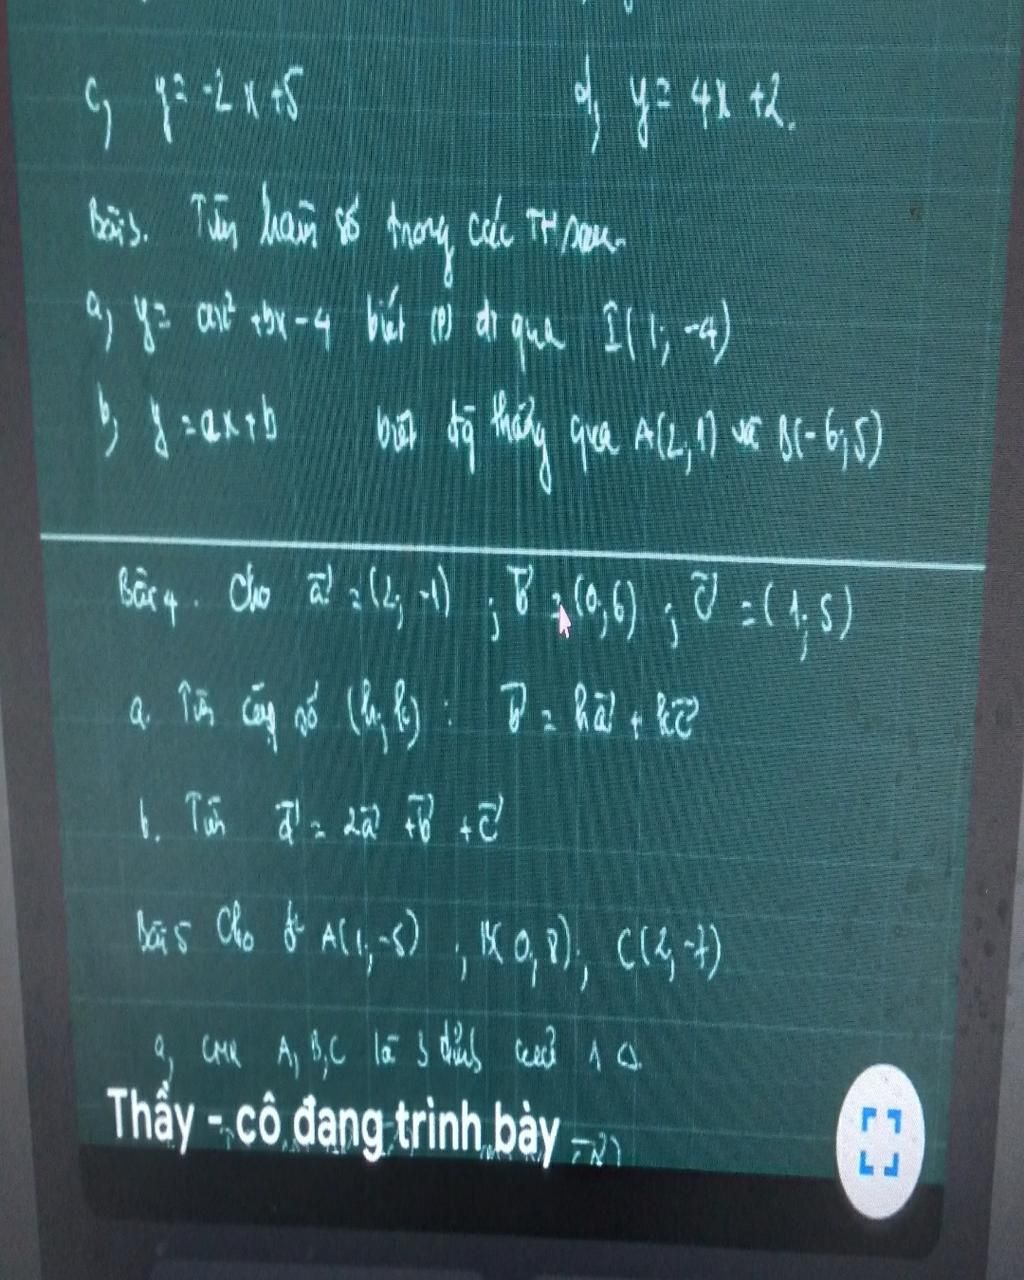 c, y = -2x+5 d, y = 4x+2.
Bài 3. Tìm hàm số trong các TH sau.
a, y = ax² + bx - 4 biết (P) đi qua I(1; -4)
b, y = ax+b biết đg thẳng qua A(2, 1) và B(-6; 5)
Bài 4. Cho a⃗ = (2; -1) ; b⃗ = (0, 6) ; c⃗ = (1; 5)
a. Tìm cặp số (h, k) : b⃗ = ha⃗ + kc⃗
b. Tìm d⃗ = 2a⃗ + b⃗ + c⃗
Bài 5 Cho A(1; -5) ; B(0, 8); C(2, -7)
a, CMR A, B, C là 3 đỉnh của 1 Δ.
Thầy - cô đang trình bày